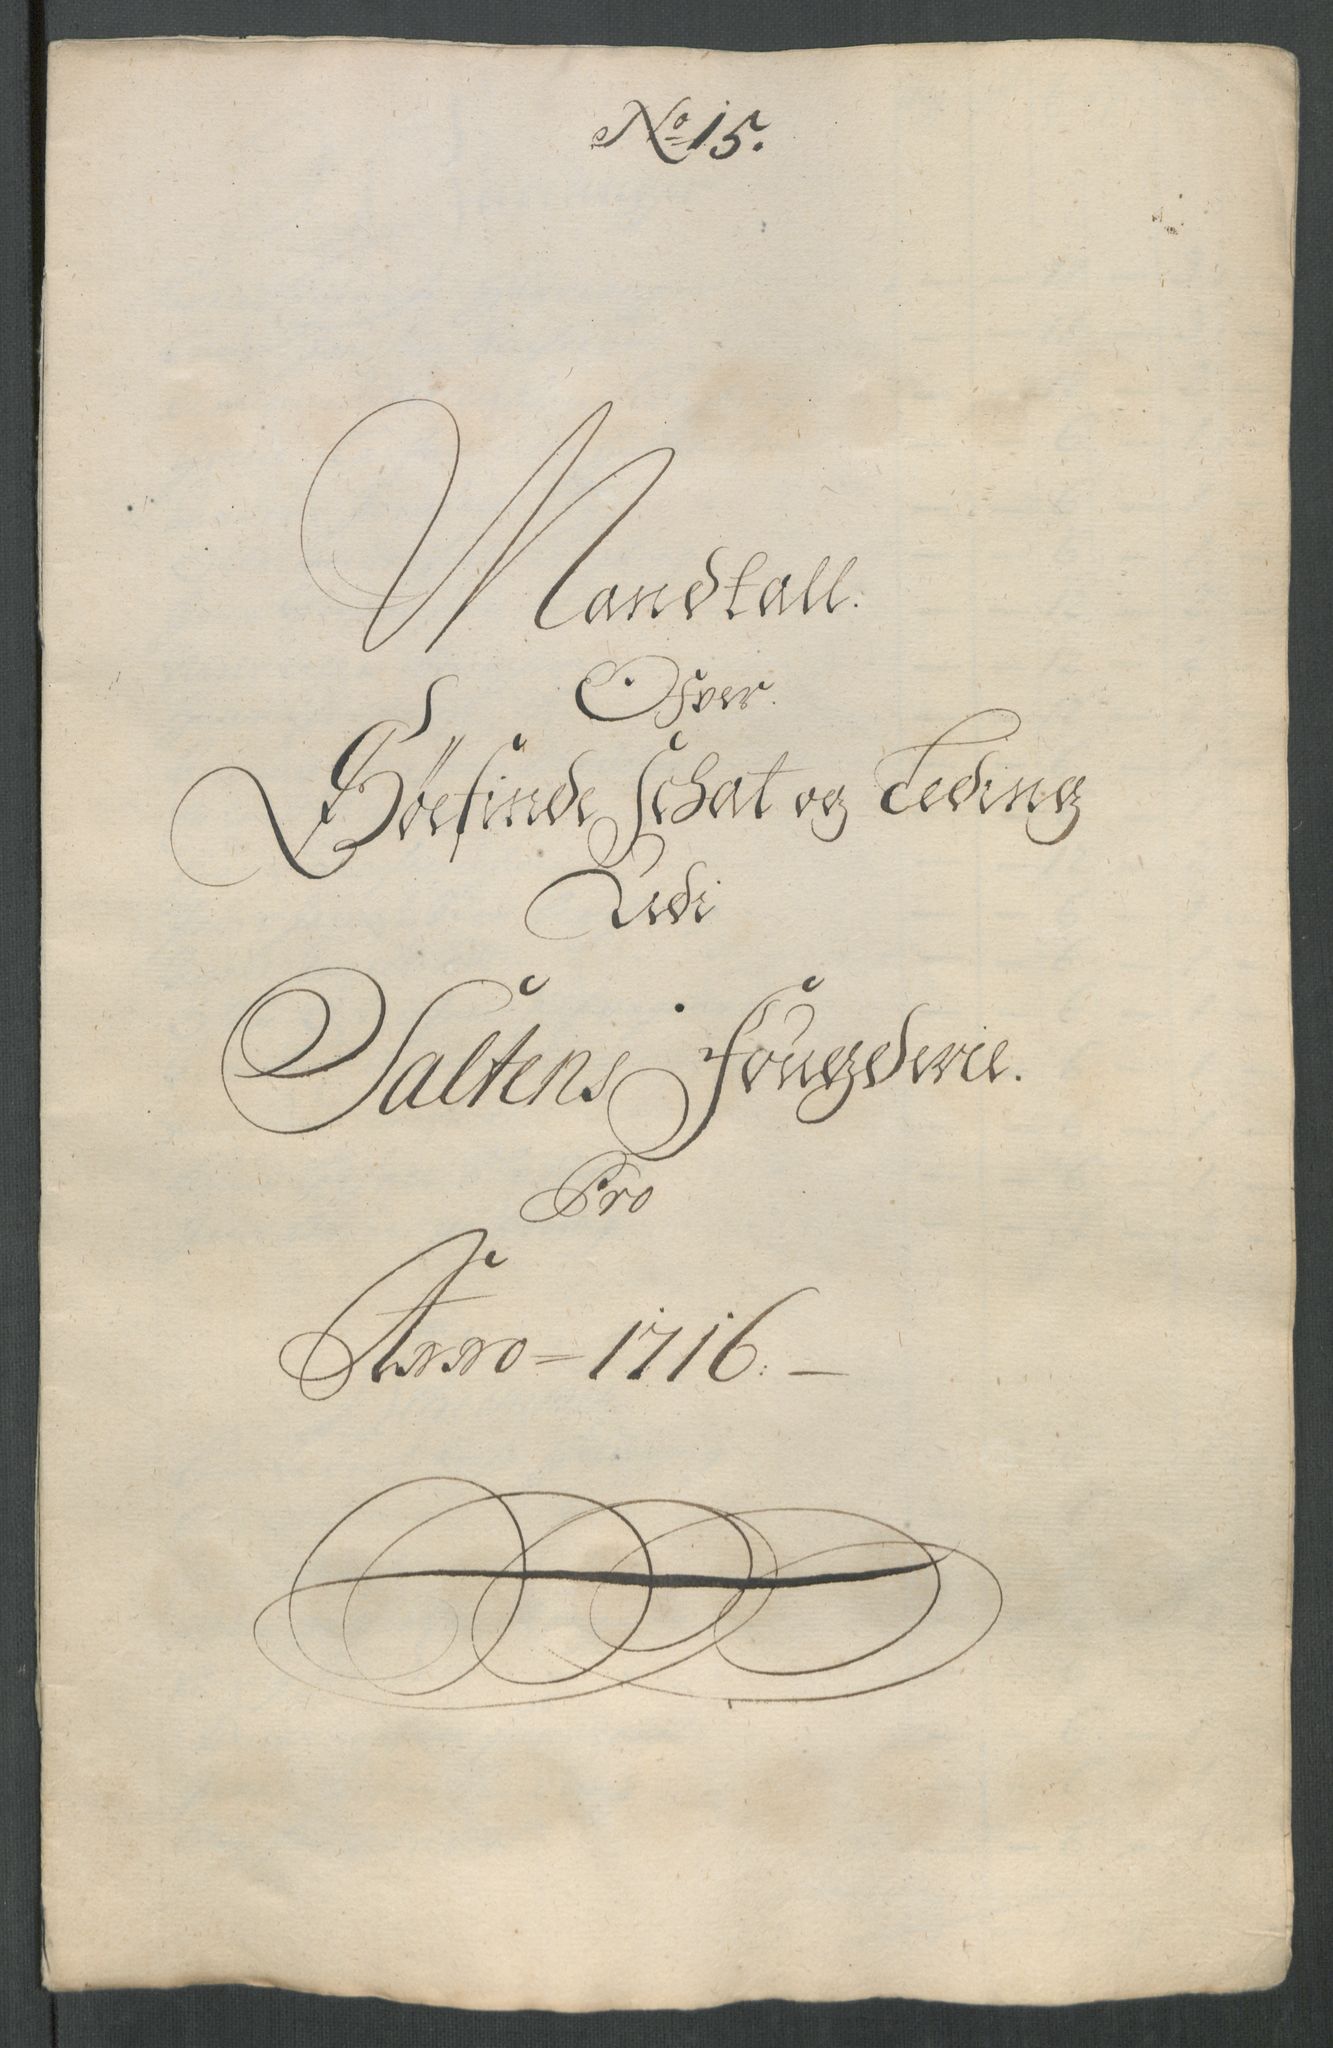 No 15.
Mandtall.
Ofver
Bøefinde Schat og Leding
Udi
Saltens Fougderie.
Pro
Anno = 1716. —